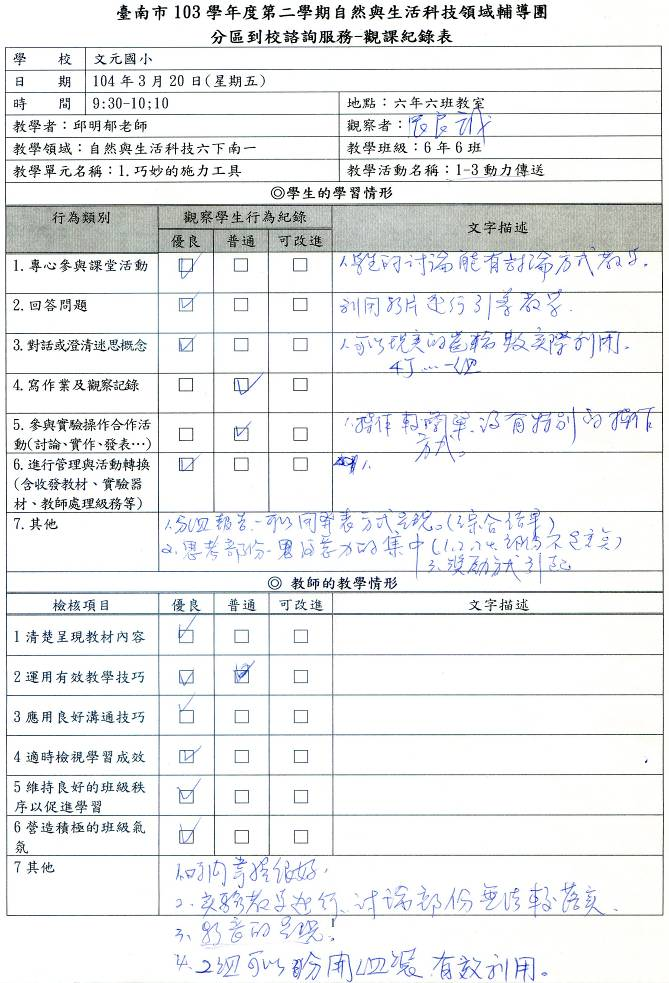 臺南市 103 學年度第二學期自然與生活科技領域輔導團
分區到校諮詢服務-觀課紀錄表
學 校 文元國小
日 期 104 年 3 月 20 日(星期五)
時 間 9:30-10;10 地點：六年六班教室
教學者：邱明郁老師 觀察者：
教學領域：自然與生活科技六下南一 教學班級：6 年 6 班
教學單元名稱：1.巧妙的施力工具 教學活動名稱：1-3 動力傳送
◎學生的學習情形
行為類別 觀察學生行為紀錄 文字描述
優良 普通 可改進
1.專心參與課堂活動 1.學生的討論能有討論方式教學。
2.回答問題 利用影片進行引導教學.
3.對話或澄清迷思概念 1.可以現實的齒輪數實際利用。
4丁……一組
4.寫作業及觀察記錄
5.參與實驗操作合作活動(討論、實作、發表…) 1.操作較簡單.沒有特別的操作
方式。
6.進行管理與活動轉換(含收發教材、實驗器材、教師處理級務等) 1.
7.其他 1.分組報告-可以同學表方式呈現。(綜合結果)
2.思考部份-
的集中(1.2.
3.獎勵方式引起
◎ 教師的教學情形
檢核項目 優良 普通 可改進 文字描述
1 清楚呈現教材內容
2 運用有效教學技巧
3 應用良好溝通技巧
4 適時檢視學習成效
5 維持良好的班級秩序以促進學習
6 營造積極的班級氣氛
7 其他 1.時間掌控很好.
2.實驗教學進行、討論部份無法較落實.
3.影音的呈現。
4.2組可以分開1組裝.有效利用。